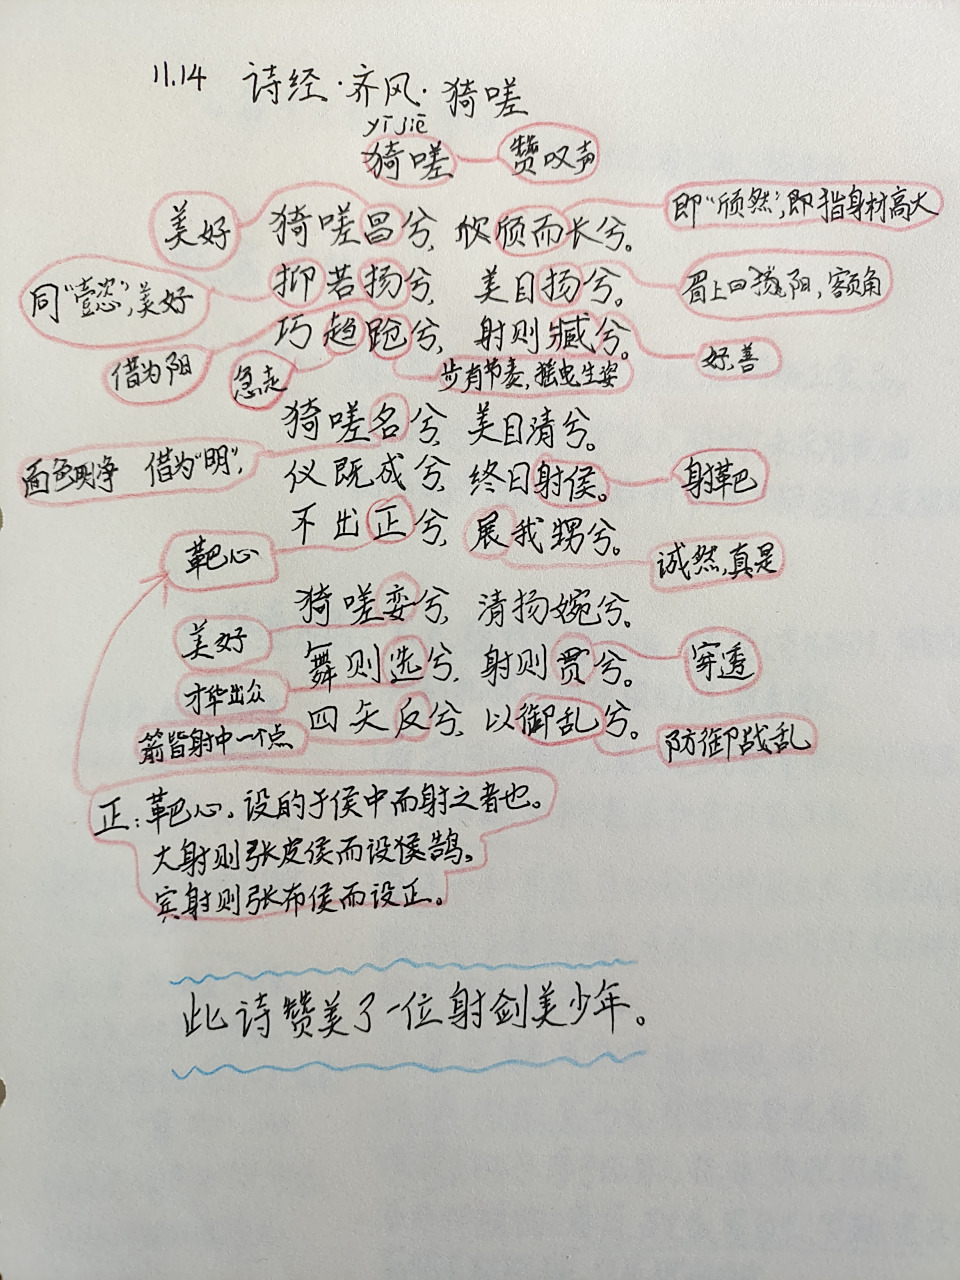 11.14 诗经·齐风·猗嗟
yī jiē
猗嗟 赞叹声
美好 猗嗟昌兮, 欣颀而长兮。 即"颀然",即指身材高大
同"懿",美好 抑若扬兮, 美目扬兮。 眉上曰扬,阳,额角
借为阳 巧趋跄兮, 射则臧兮。 好,善
急走 步有节奏,摇曳生姿
猗嗟名兮, 美目清兮。
面色明净 借为"明", 仪既成兮, 终日射侯。 射靶
靶心 不出正兮, 展我甥兮。 诚然,真是
美好 猗嗟娈兮, 清扬婉兮。
才华出众 舞则选兮, 射则贯兮。 穿透
箭皆射中一个点 四矢反兮, 以御乱兮。 防御战乱
正:靶心。设的于侯中而射之者也。
大射则张皮侯而设鹄。
宾射则张布侯而设正。
此诗赞美了一位射剑美少年。